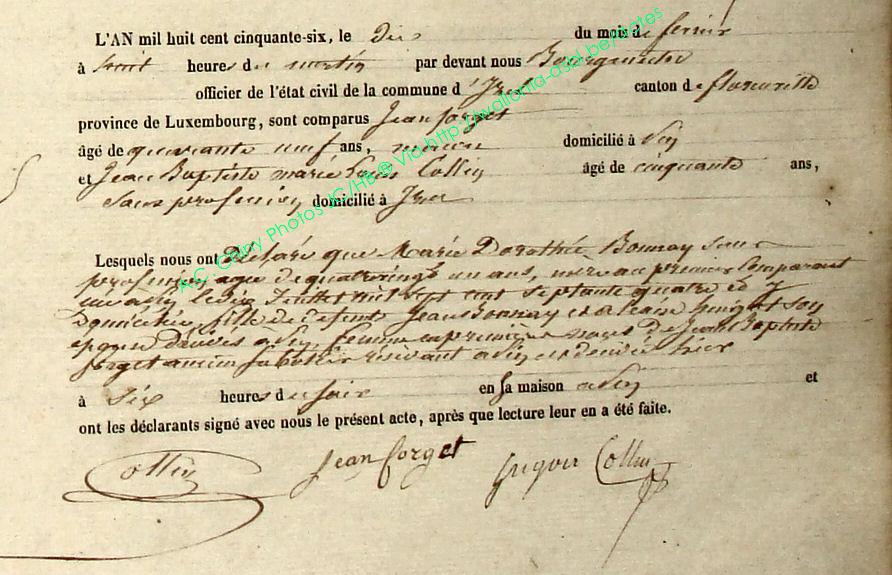 L'AN mil huit cent cinquante-six, le dix du mois de fevrier
à huit heures du matin par devant nous Bourgmestre
officier de l'état civil de la commune d'Izel canton de florenville
province de Luxembourg, sont comparus Jean forget
âgé de quarante neuf ans, domicilié à
et Jean Baptiste marie Louis Collin âgé de cinquante ans,
Sans profession domicilié à Izel
Lesquels nous ont déclaré que Marie Dorothée Bonnay sans
profession agee de quatrevingt un ans, mere au premier Comparant
nee le dix Juillet mil sept cent septante quatre et y
Domiciliée, fille de defunt Jean Bonnay et de son
epouse femme en premieres noces de Jean Baptiste
forget ancien residant et decedée hier
à Six heures du soir en sa maison et
ont les déclarants signé avec nous le présent acte, après que lecture leur en a été faite.
Collin Jean forget Collin
A.C. Chiny Photos JC/HB @ Via http://wallonia-asbl.be/actes